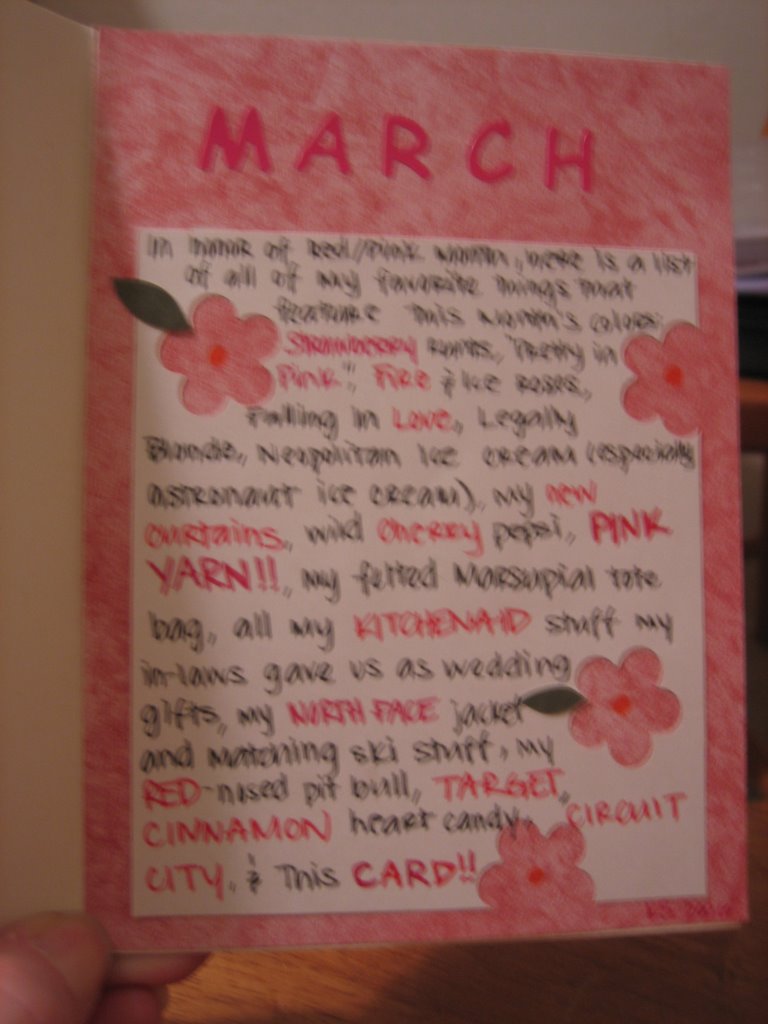 MARCH
In honor of Red/Pink month, here is a list
of all of my favorite things that
feature this month's colors:
STRAWBERRY Runts, "Pretty in
Pink", Fire & Ice Roses,
Falling in Love, Legally
Blonde, Neopolitan Ice cream (especially
astronaut ice cream), my new
curtains, wild Cherry pepsi, PINK
YARN!!, my felted Marsupial tote
bag, all my KITCHENAID stuff my
in-laws gave us as wedding
gifts, my NORTH FACE jacket
and matching ski stuff, my
RED-nosed pit bull, TARGET,
CINNAMON heart candy, CIRCUIT
CITY, & This CARD!!